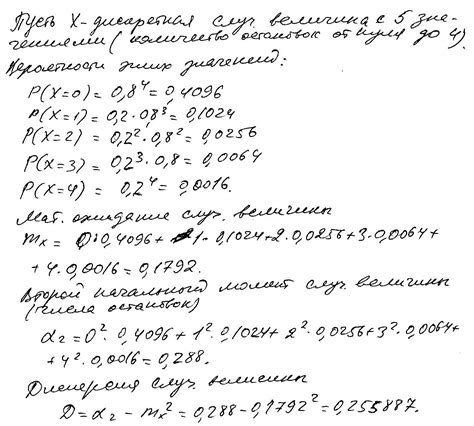 Пусть X - дискретная случ. величина с 5 зна-
чениями (количество остановок от нуля до 4)
Вероятности этих значений:
P(X=0) = 0,8⁴ = 0,4096
P(X=1) = 0,2·0,8³ = 0,1024
P(X=2) = 0,2²·0,8² = 0,0256
P(X=3) = 0,2³·0,8 = 0,0064
P(X=4) = 0,2⁴ = 0,0016.
Мат. ожидание случ. величины
mₓ = 0·0,4096 + 1·0,1024 + 2·0,0256 + 3·0,0064 +
+ 4·0,0016 = 0,1792.
Второй начальный момент случ. величины
(числа остановок)
α₂ = 0²·0,4096 + 1²·0,1024 + 2²·0,0256 + 3²·0,0064 +
+ 4²·0,0016 = 0,288.
Дисперсия случ. величины
D = α₂ - mₓ² = 0,288 - 0,1792² = 0,255887.